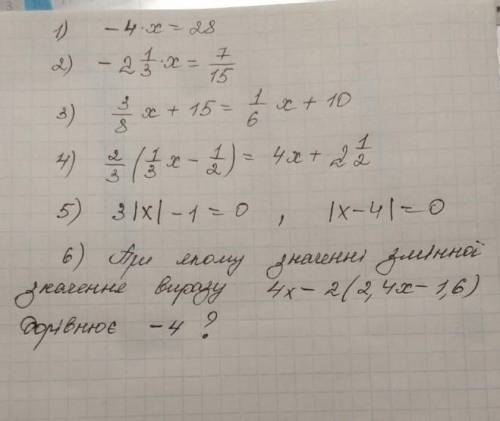 1) -4·x = 28
2) -2 1/3·x = 7/15
3) 3/8 x + 15 = 1/6 x + 10
4) 2/3 (1/3 x - 1/2) = 4x + 2 1/2
5) 3|x| - 1 = 0 , |x-4| = 0
6) При якому значенні змінної
значення виразу 4x - 2(2,4x - 1,6)
дорівнює -4 ?